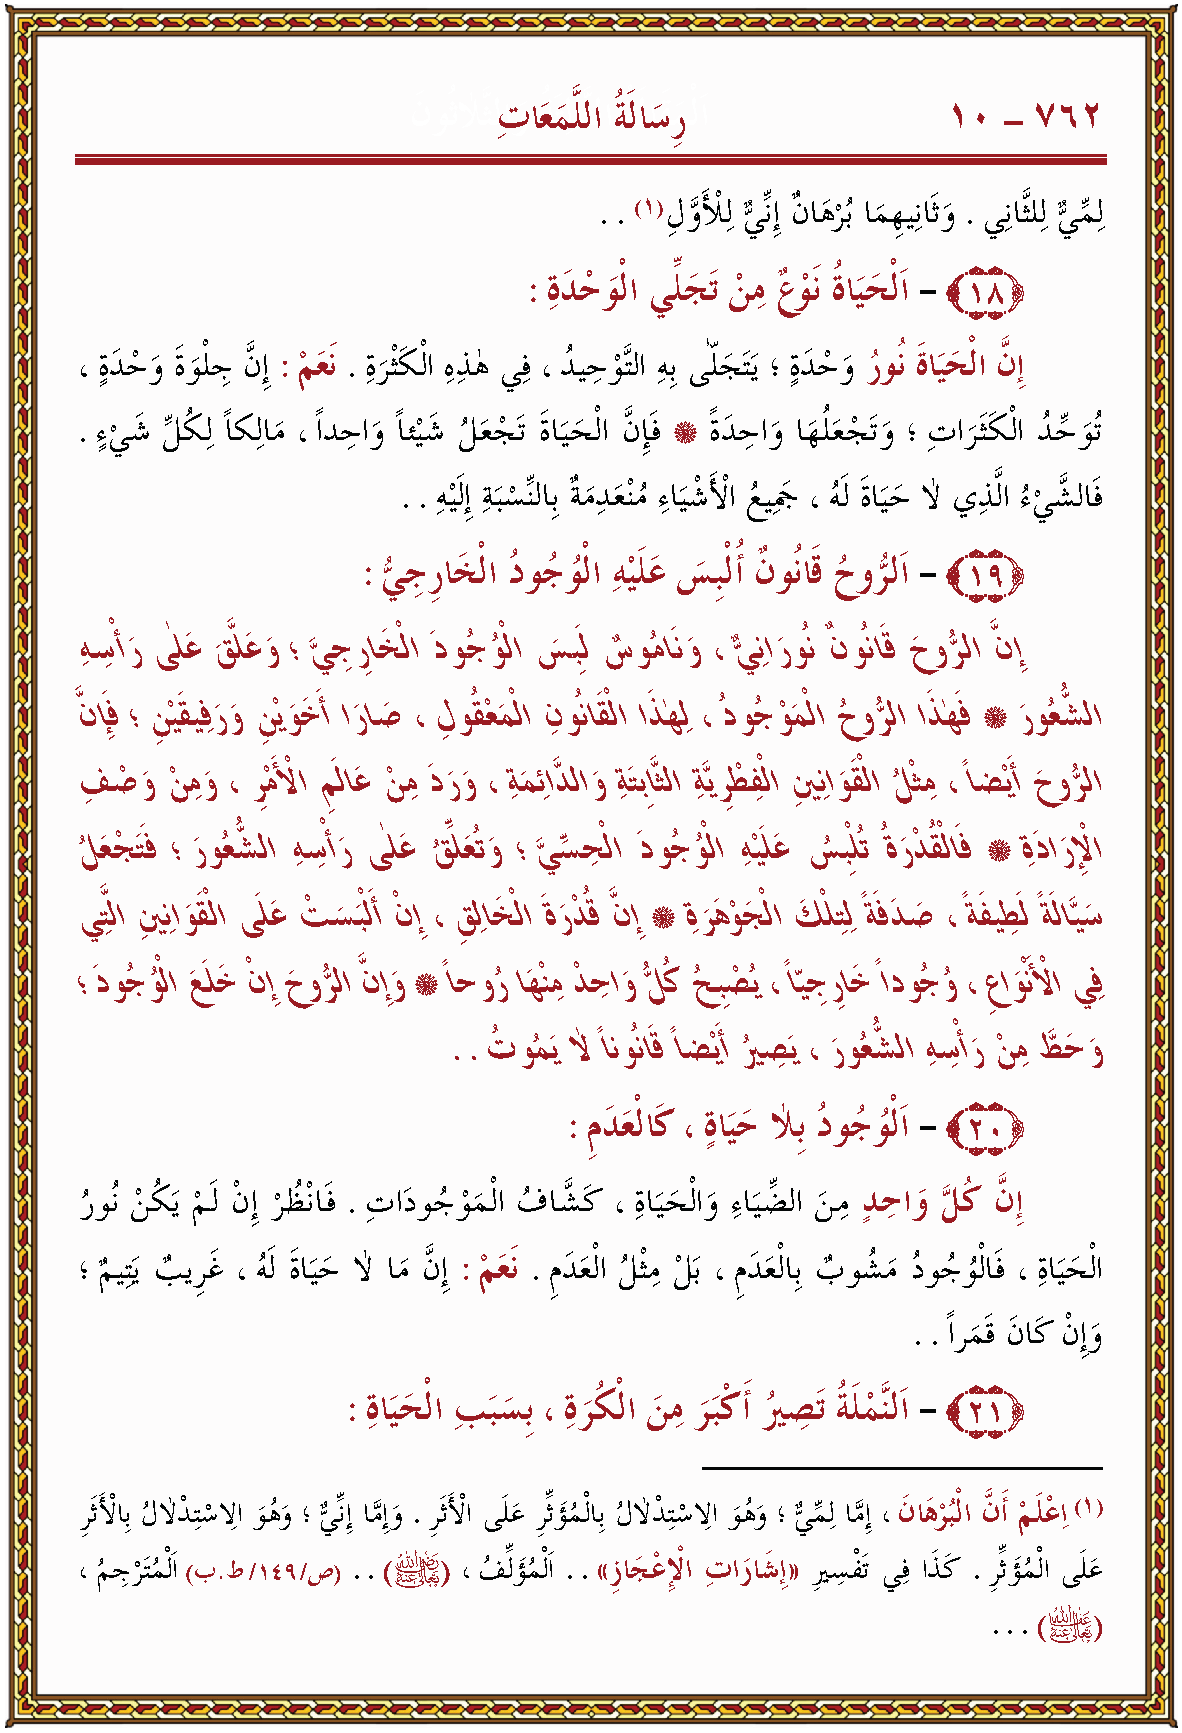 ٧٦٢ – ١٠ رِسَالَةُ اللَّمَعَاتِ
لِمِّيٌّ لِلثَّانِي . وَثَانِيهِمَا بُرْهَانٌ إِنِّيٌّ لِلْأَوَّلِ (١) . .
﴿١٨﴾ – اَلْحَيَاةُ نَوْعٌ مِنْ تَجَلِّي الْوَحْدَةِ :
إِنَّ الْحَيَاةَ نُورُ وَحْدَةٍ ؛ يَتَجَلّٰى بِهِ التَّوْحِيدُ ، فِي هٰذِهِ الْكَثْرَةِ . نَعَمْ : إِنَّ جِلْوَةَ وَحْدَةٍ ،
تُوَحِّدُ الْكَثَرَاتِ ؛ وَتَجْعَلُهَا وَاحِدَةً ۞ فَإِنَّ الْحَيَاةَ تَجْعَلُ شَيْئاً وَاحِداً ، مَالِكاً لِكُلِّ شَيْءٍ .
فَالشَّيْءُ الَّذِي لاٰ حَيَاةَ لَهُ ، جَمِيعُ الْأَشْيَاءِ مُنْعَدِمَةٌ بِالنِّسْبَةِ إِلَيْهِ . .
﴿١٩﴾ – اَلرُّوحُ قَانُونٌ أُلْبِسَ عَلَيْهِ الْوُجُودُ الْخَارِجِيُّ :
إِنَّ الرُّوحَ قَانُونٌ نُورَانِيٌّ ، وَنَامُوسٌ لَبِسَ الْوُجُودَ الْخَارِجِيَّ ؛ وَعَلَّقَ عَلٰى رَأْسِهِ
الشُّعُورَ ۞ فَهٰذَا الرُّوحُ الْمَوْجُودُ ، لِهٰذَا الْقَانُونِ الْمَعْقُولِ ، صَارَا أَخَوَيْنِ وَرَفِيقَيْنِ ؛ فَإِنَّ
الرُّوحَ أَيْضاً ، مِثْلُ الْقَوَانِينِ الْفِطْرِيَّةِ الثَّابِتَةِ وَالدَّائِمَةِ ، وَرَدَ مِنْ عَالَمِ الْأَمْرِ ، وَمِنْ وَصْفِ
الْإِرَادَةِ ۞ فَالْقُدْرَةُ تُلْبِسُ عَلَيْهِ الْوُجُودَ الْحِسِّيَّ ؛ وَتُعَلِّقُ عَلٰى رَأْسِهِ الشُّعُورَ ؛ فَتَجْعَلُ
سَيَّالَةً لَطِيفَةً ، صَدَفَةً لِتِلْكَ الْجَوْهَرَةِ ۞ إِنَّ قُدْرَةَ الْخَالِقِ ، إِنْ أَلْبَسَتْ عَلَى الْقَوَانِينِ الَّتِي
فِي الْأَنْوَاعِ ، وُجُوداً خَارِجِيّاً ، يُصْبِحُ كُلُّ وَاحِدْ مِنْهَا رُوحاً ۞ وَإِنَّ الرُّوحَ إِنْ خَلَعَ الْوُجُودَ ؛
وَحَطَّ مِنْ رَأْسِهِ الشُّعُورَ ، يَصِيرُ أَيْضاً قَانُوناً لاٰ يَمُوتُ . .
﴿٢٠﴾ – اَلْوُجُودُ بِلاٰ حَيَاةٍ ، كَالْعَدَمِ :
إِنَّ كُلَّ وَاحِدٍ مِنَ الضِّيَاءِ وَالْحَيَاةِ ، كَشَّافُ الْمَوْجُودَاتِ . فَانْظُرْ إِنْ لَمْ يَكُنْ نُورُ
الْحَيَاةِ ، فَالْوُجُودُ مَشُوبٌ بِالْعَدَمِ ، بَلْ مِثْلُ الْعَدَمِ . نَعَمْ : إِنَّ مَا لاٰ حَيَاةَ لَهُ ، غَرِيبٌ يَتِيمٌ ؛
وَإِنْ كَانَ قَمَراً . .
﴿٢١﴾ – اَلنَّمْلَةُ تَصِيرُ أَكْبَرَ مِنَ الْكُرَةِ ، بِسَبَبِ الْحَيَاةِ :
(١) اِعْلَمْ أَنَّ الْبُرْهَانَ ، إِمَّا لِمِّيٌّ ؛ وَهُوَ الاِسْتِدْلاٰلُ بِالْمُؤَثِّرِ عَلَى الْأَثَرِ . وَإِمَّا إِنِّيٌّ ؛ وَهُوَ الاِسْتِدْلاٰلُ بِالْأَثَرِ
عَلَى الْمُؤَثِّرِ . كَذَا فِي تَفْسِيرِ «إِشَارَاتِ الْإِعْجَازِ» . . اَلْمُؤَلِّفُ ، (رَضِيَ اللهُ تَعَالَى عَنْهُ) . . (ص/١٤٩/ط.ب) اَلْمُتَرْجِمُ ،
(عَفَا اللهُ تَعَالَى عَنْهُ) . . .